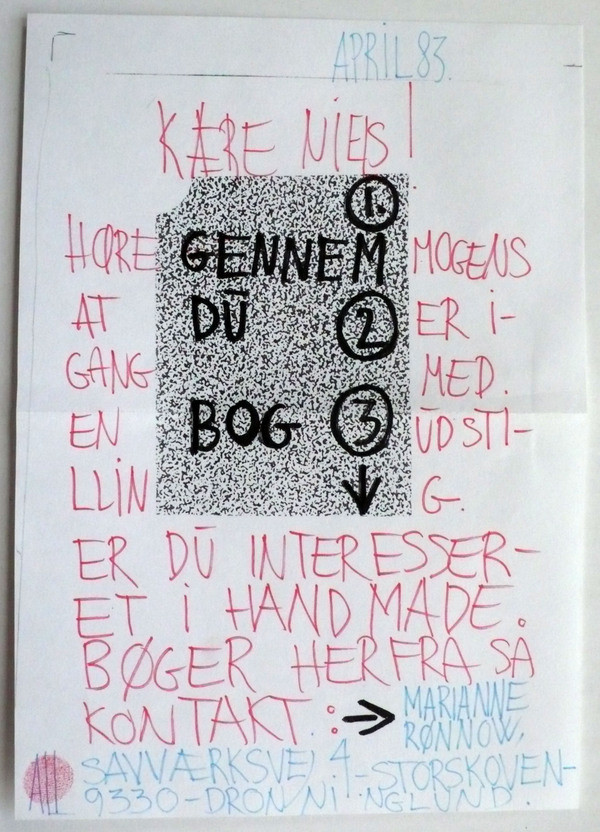 APRIL 83.
KÆRE NIELS!
1.
HØRE GENNEM MOGENS
AT DŪ 2 ER I-
GANG MED.
EN BOG 3 ŪDSTI-
LLIN G.
ER DŪ INTERESSER-
ET I HAND MADE.
BØGER HERFRA SÅ
KONTAKT. : → MARIANNE
RØNNOW,
SAVVÆRKSVEJ 4 - STORSKOVEN-
9330 - DRONNINGLUND.